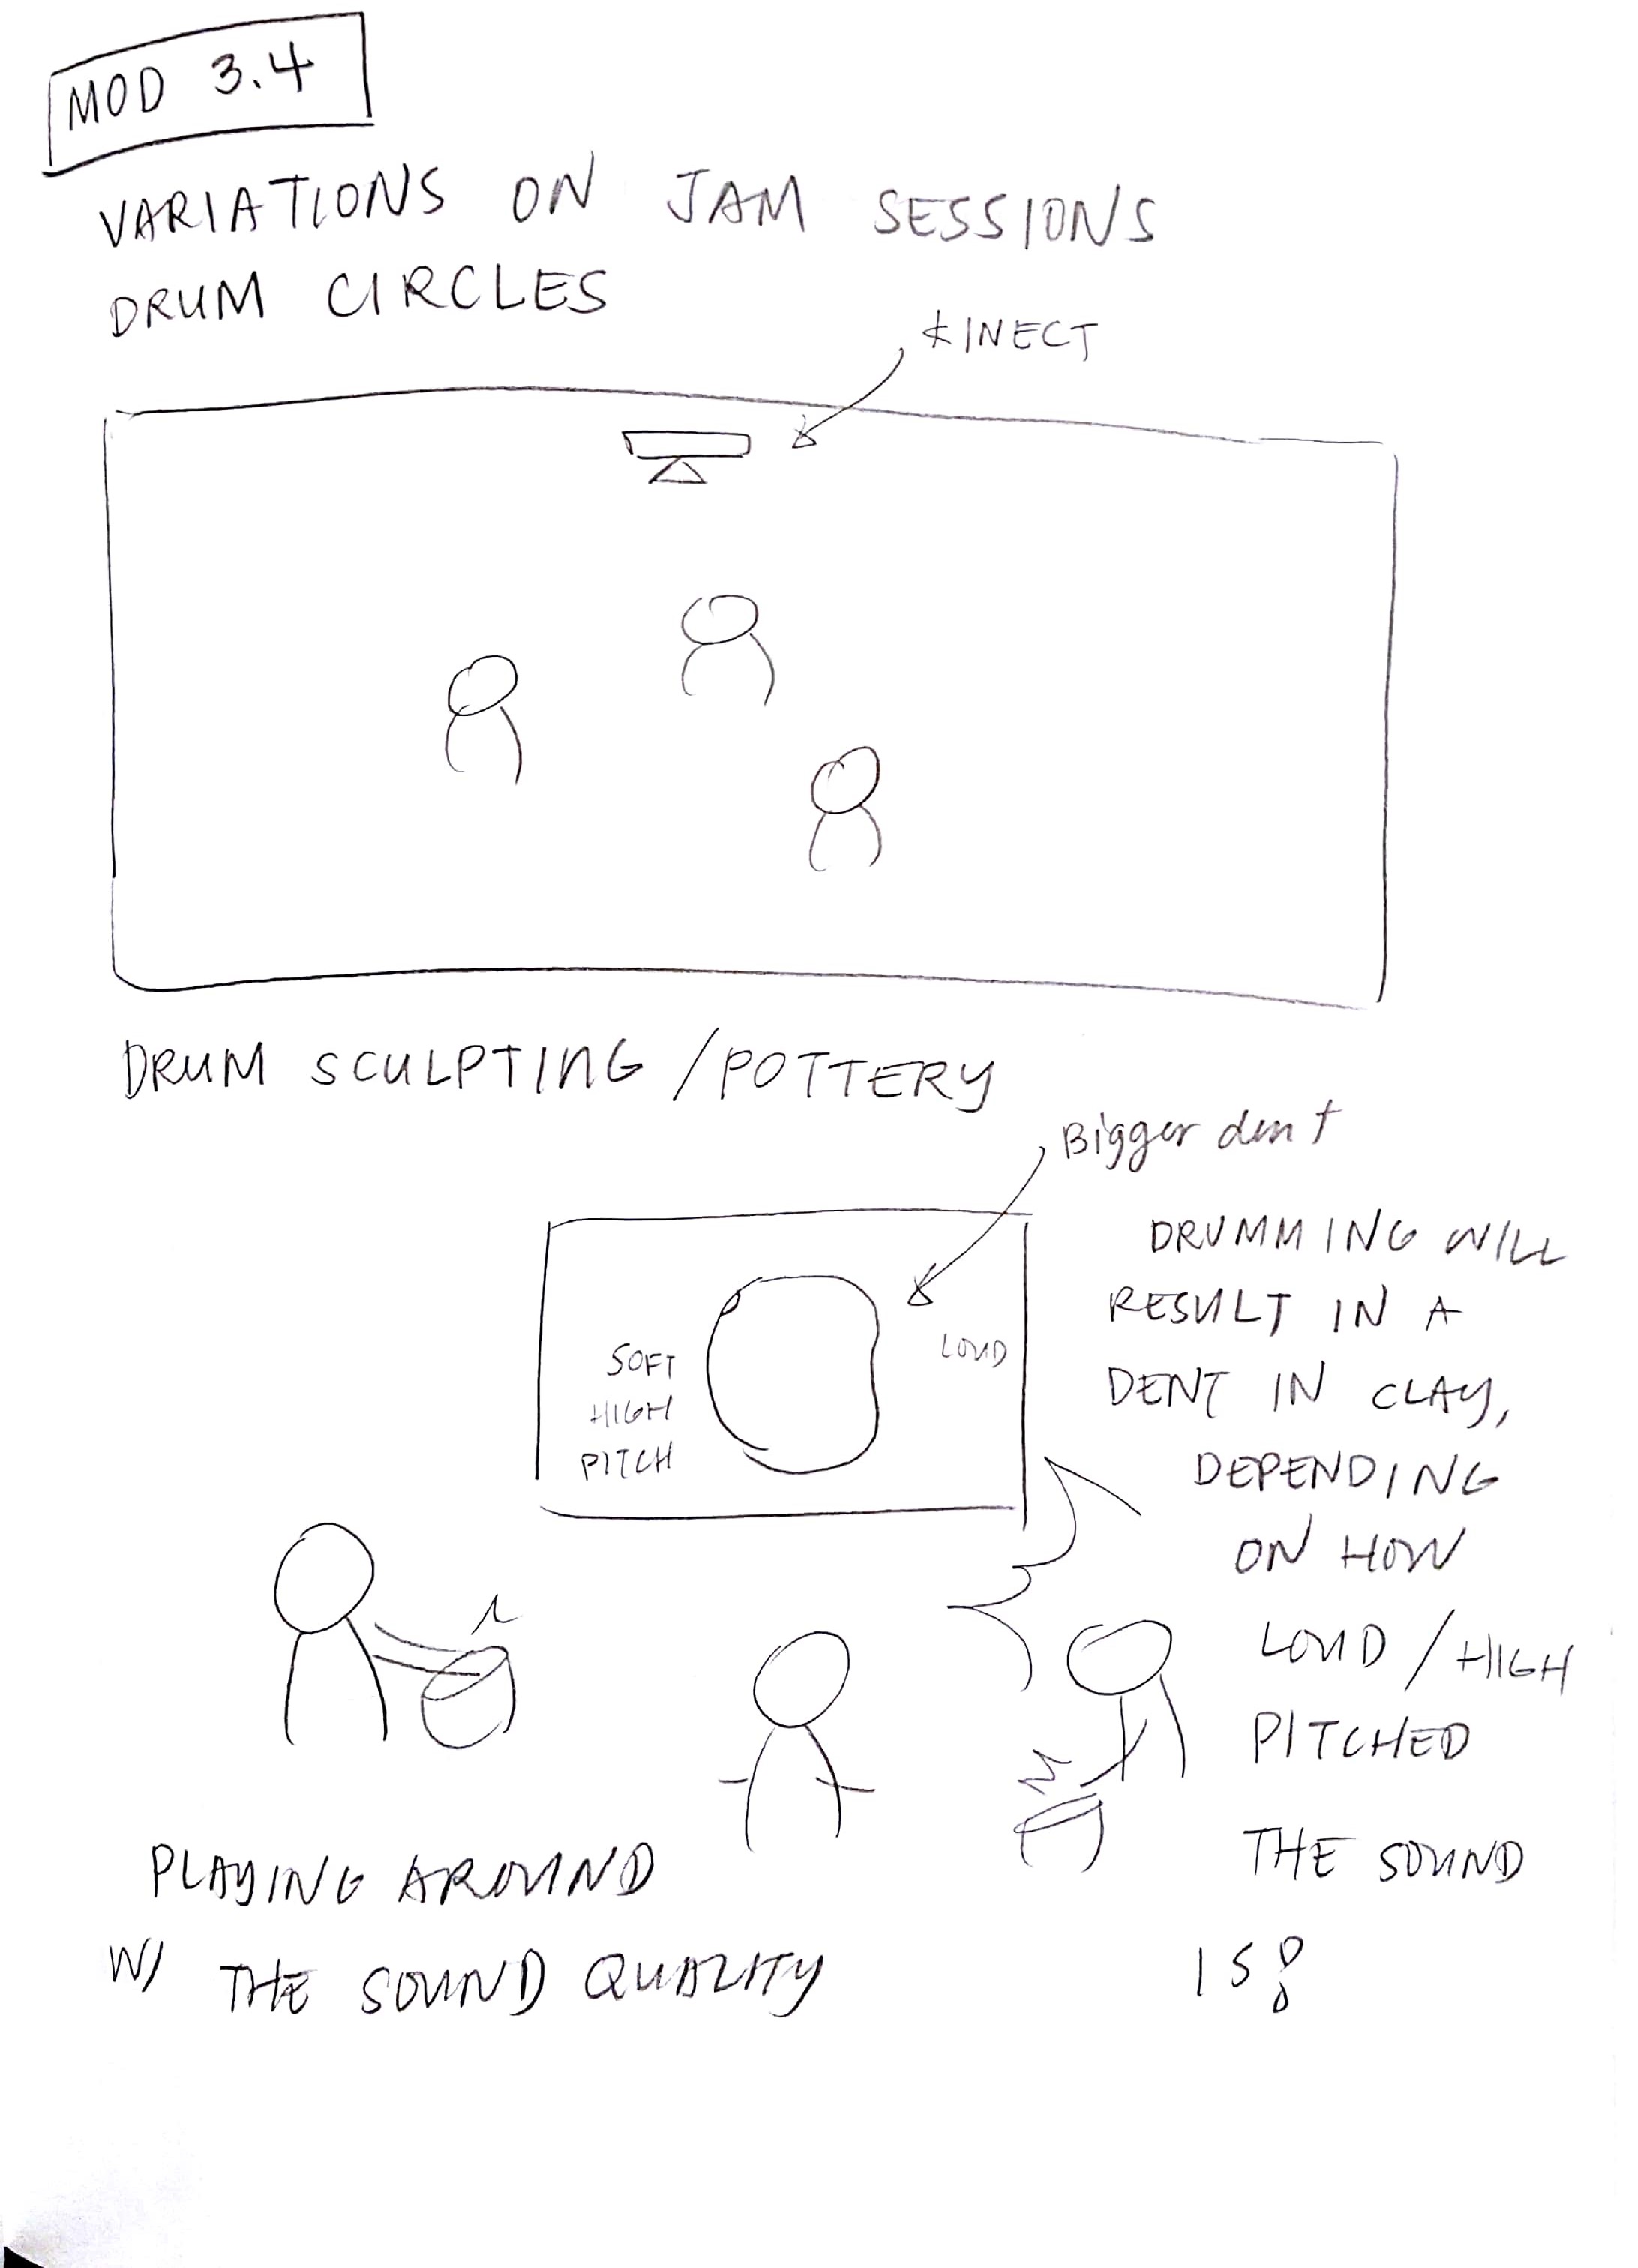 MOD 3.4
VARIATIONS ON JAM SESSIONS
DRUM CIRCLES
KINECT
DRUM SCULPTING /POTTERY
Bigger dent
SOFT
HIGH
PITCH
LOUD
DRUMMING WILL
RESULT IN A
DENT IN CLAY,
DEPENDING
ON HOW
LOUD / HIGH
PITCHED
THE SOUND
IS!
PLAYING AROUND
W/ THE SOUND QUALITY